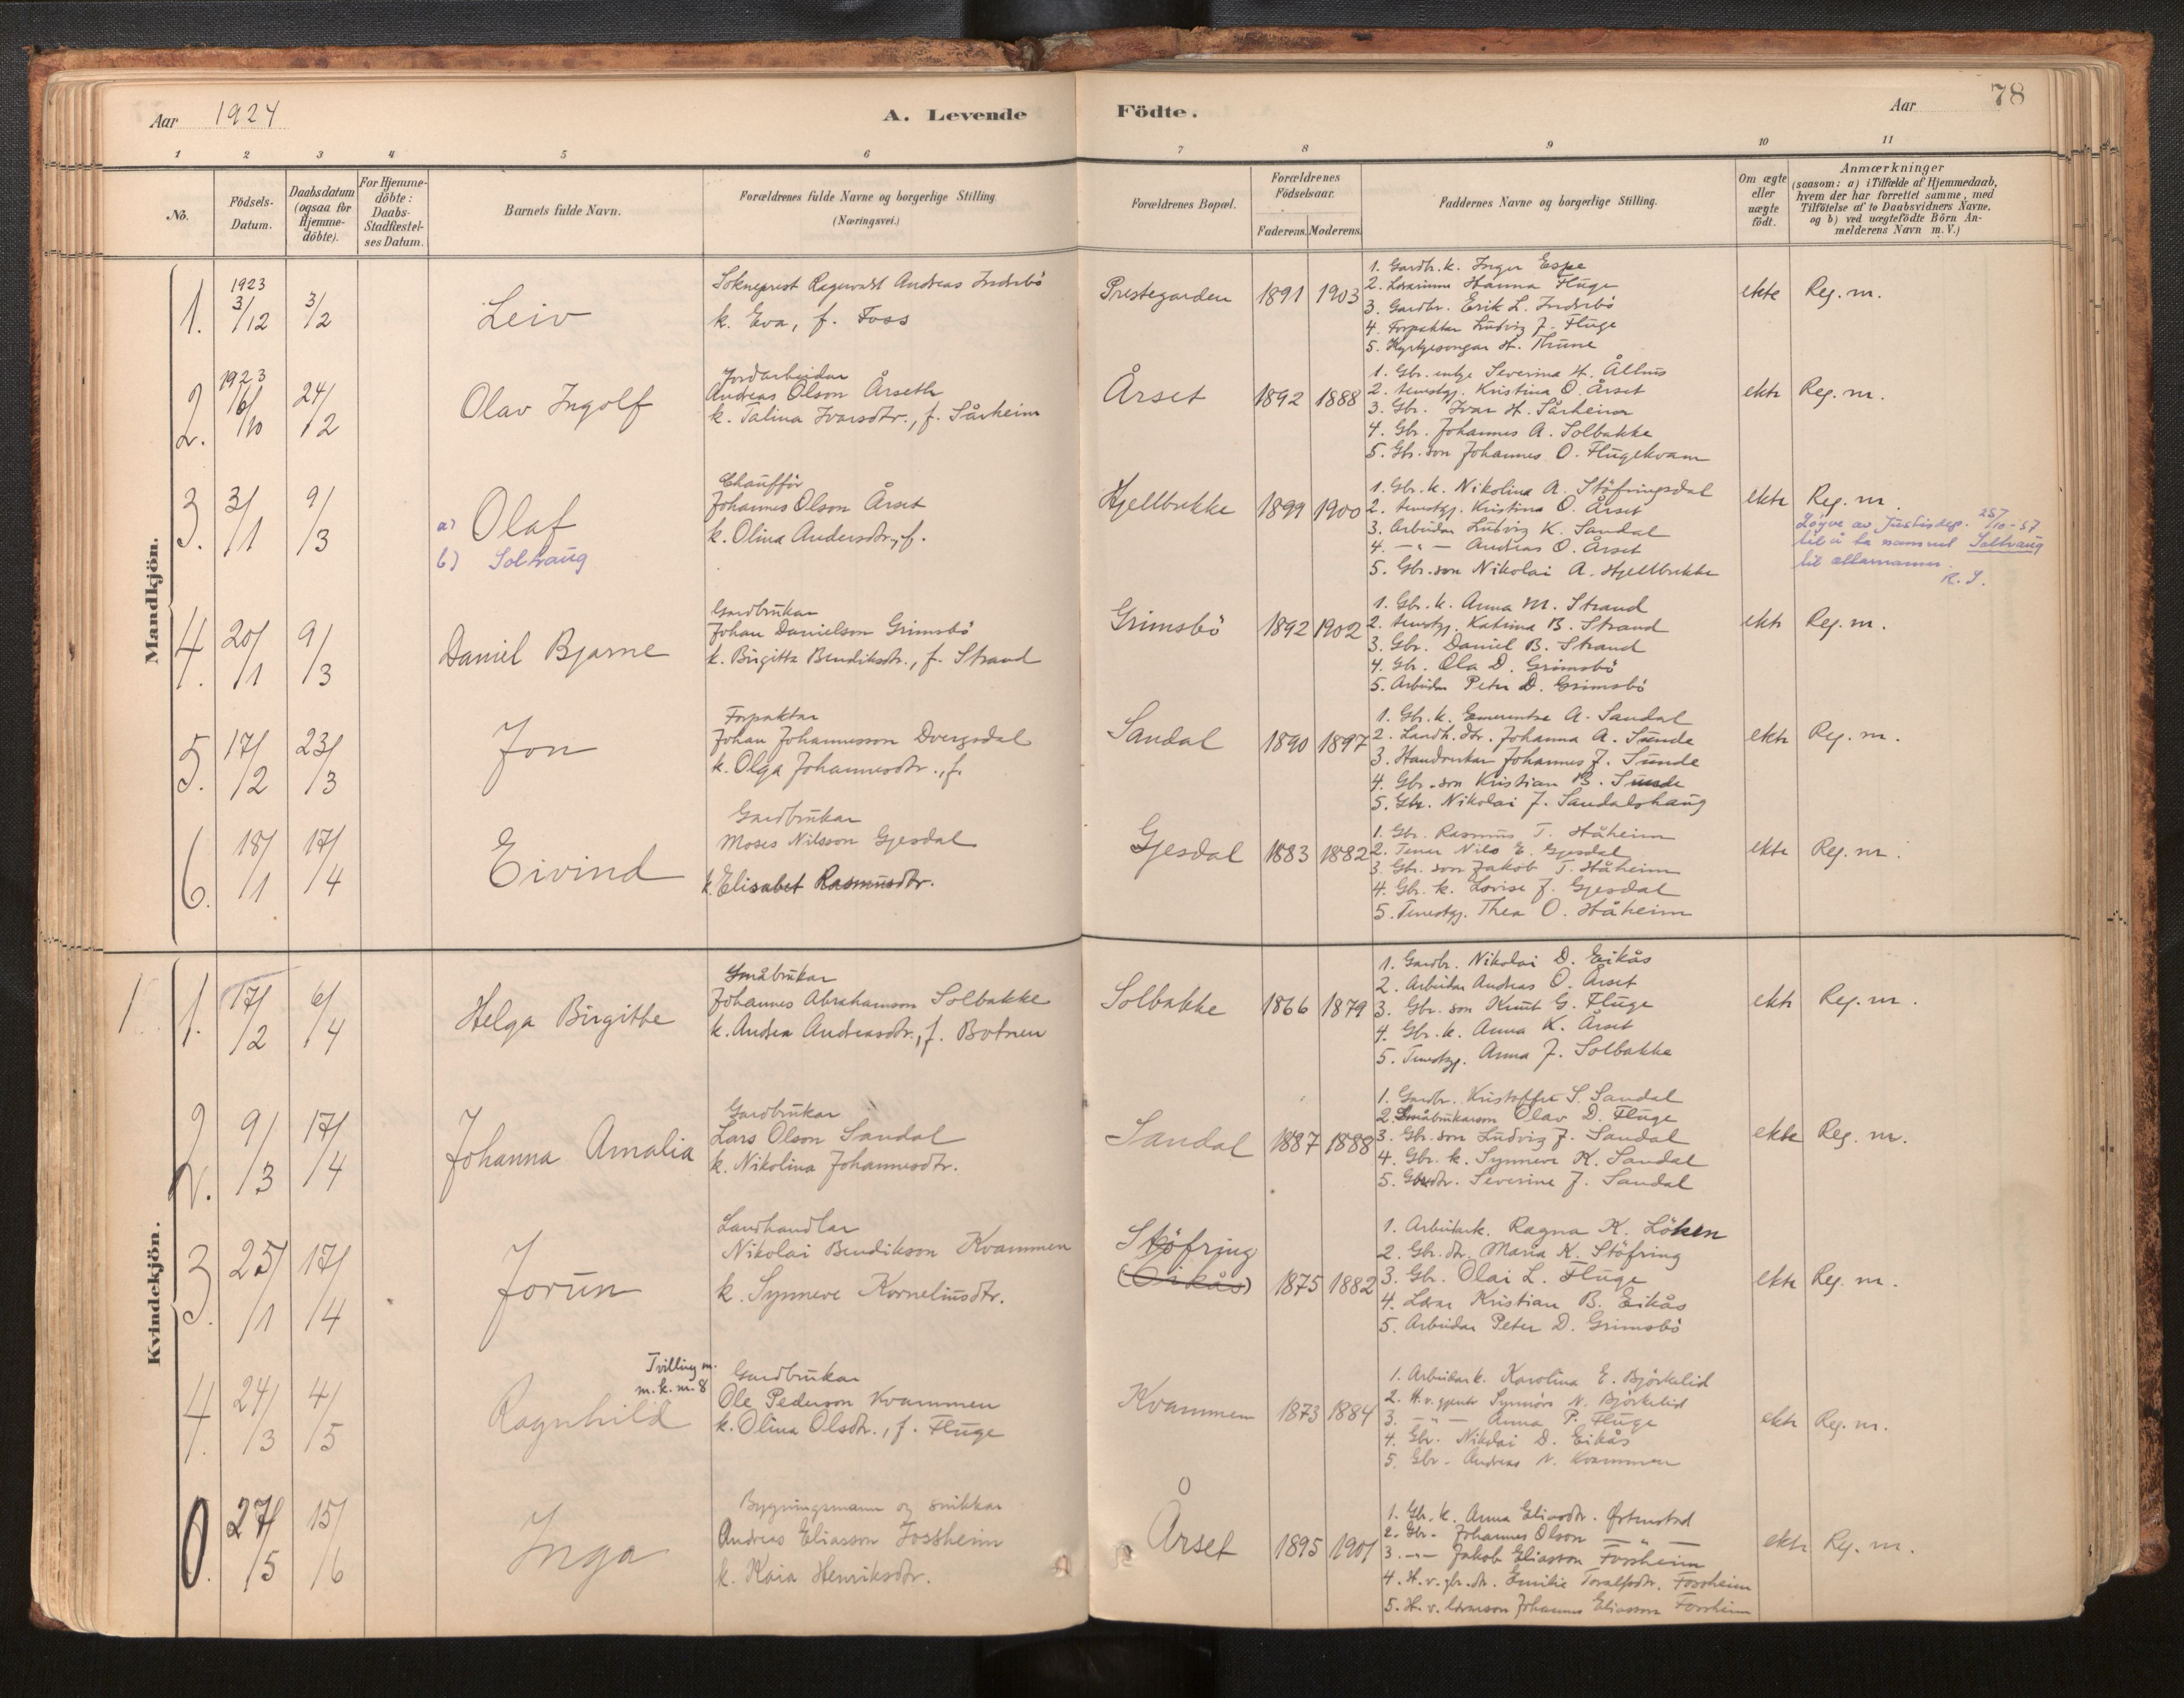 Aar 1924 A. Levende Födte. Aar 78
1 2 3 4 5 6 7 8 9 10 11
No.
Födsels-Datum.
Daabsdatum (ogsaa for Hjemme-döbte).
For Hjemme-döbte: Daabs-Stadfæstel-ses Datum.
Barnets fulde Navn.
Forældrenes fulde Navne og borgerlige Stilling (Næringsvei.)
Forældrenes Bopæl.
Forældrenes Födselsaar.
Faderens. Moderens.
Faddernes Navne og borgerlige Stilling.
Om ægte eller uægte födt.
Anmærkninger
(saasom: a) i Tilfælde af Hjemmedaab, hvem der har forrettet samme, med Tilföielse af to Daabsvidners Navne, og b) ved uægtefödte Börn Anmelderens Navn m.V.)
Mandkjön.
1. 1923 3/12 3/2 Leiv
Sokneprest Ragnvald Andreas Indrebö
k. Eva, f. Foss
Prestegarden 1891 1903
1. Gardbr. k. Inger Espe
2. Lærarinne Hanna Fluge
3. Gardbr. Erik L. Indrebö
4. Forpaktar Ludvig J. Fluge
5. Kyrkjesongar H. Thune
ekte Reg. m.
2. 1923 6/10 24/2 Olav Ingolf
Jordarbeidar
Andreas Olson Årseth
k. Talina Ivarsdtr., f. Sårheim
Årset 1892 1888
1. Gbr. enkje Severina H. Ålhus
2. tenestgj. Kristina O. Årset
3. Gbr. Ivar H. Sårheim
4. Gbr. Johannes A. Solbakke
5. Gbr. son Johannes O. Flugekvam
ekte Reg. m.
3. 3/1 9/3 a) Olaf
b) Soltvaug
Chaufför
Johannes Olson Årset
k. Olina Andersdtr., f.
Hjellbrekke 1899 1900
1. Gbr. k. Nikolina A. Stöfringsdal
2. tenestgj. Kristina O. Årset
3. Arbeidar Ludvig K. Sandal
4. — " — Andreas O. Årset
5. Gbr. son Nikolai A. Hjellbrekke
ekte Reg. m.
Löyve av Justisdep. 25/10-57
til å ta namnet Soltvaug
til etternamn.
R. S.
4. 20/1 9/3 Daniel Bjarne
Gardbrukar
Johan Danielson Grimsbö
k. Birgitta Bendiksdtr., f. Strand
Grimsbö 1892 1902
1. Gbr. k. Anna M. Strand
2. tenestgj. Katrina B. Strand
3. Gbr. Daniel B. Strand
4. Gbr. Ola D. Grimsbö
5. Arbeidar Peter D. Grimsbö
ekte Reg. m.
5. 17/2 23/3 Jon
Forpaktar
Johan Johannesson Dvergsdal
k. Olga Johannesdtr., f.
Sandal 1890 1897
1. Gbr. k. Emerentse A. Sandal
2. Landh. dtr. Johanna A. Sunde
3. Handverkar Johannes J. Sunde
4. Gbr. son Kristian B. Sunde
5. Gbr. Nikolai J. Sandalshaug
ekte Reg. m.
6. 18/1 17/4 Eivind
Gardbrukar
Moses Nilsson Gjesdal
k. Elisabet Rasmusdtr.
Gjesdal 1883 1882
1. Gbr. Rasmus T. Håheim
2. Tenar Nils E. Gjesdal
3. Gbr. son Jakob T. Håheim
4. Gbr. k. Lovise J. Gjesdal
5. Tenestgj. Thea O. Håheim
ekte Reg. m.
Kvindekjön.
1 1. 17/2 6/4 Helga Birgitte
Småbrukar
Johannes Abrahamson Solbakke
k. Andrea Andreasdtr., f. Botnen
Solbakke 1866 1879
1. Gardbr. Nikolai D. Eikås
2. Arbeidar Andreas O. Årset
3. Gbr. son Knut G. Fluge
4. Gbr. k. Anna K. Årset
5. Tenestgj. Anna J. Solbakke
ekte Reg. m.
2. 9/3 17/4 Johanna Amalia
Gardbrukar
Lars Olson Sandal
k. Nikolina Johannesdtr.
Sandal 1887 1888
1. Gardbr. Kristoffer S. Sandal
2. Småbrukarson Olav D. Fluge
3. Gbr. son Ludvig J. Sandal
4. Gbr. k. Synneve K. Sandal
5. Gbrdtr. Severine J. Sandal
ekte Reg. m.
3. 25/1 17/4 Jorun
Landhandlar
Nikolai Bendikson Kvammen
k. Synneve Korneliusdtr.
Stöfring
(Eikås) 1875 1882
1. Arbeidark. Ragna K. Löken
2. Gbr. dtr. Maria K. Stöfring
3. Gbr. Olai L. Fluge
4. Lærar Kristian B. Eikås
5. Arbeidar Peter D. Grimsbö
ekte Reg. m.
4. 24/3 4/5 Ragnhild
Tvilling m.
m. k. m. 8
Gardbrukar
Ole Pederson Kvammen
k. Olina Olsdtr., f. Fluge
Kvammen 1873 1884
1. Arbeidark. Karolina E. Björkelid
2. H. v. gjente Synnöv N. Björkelid
3. — " — Anna P. Fluge
4. Gbr. Nikolai D. Eikås
5. Gbr. Andreas N. Kvammen
ekte Reg. m.
0. 27/5 15/6 Inga
Bygningsmann og snikkar
Andreas Eliasson Fossheim
k. Kaia Henriksdtr.
Årset 1895 1901
1. Gbr. k. Anna Eliasdtr. Östenstad
2. Gbr. Johannes Olson — " —
3. — " — Jakob Eliasson Fossheim
4. H. v. gbr. dtr. Emilie Toralfsdtr. Fossheim
5. H. v. lærarson Johannes Eliasson Fossheim
ekte Reg. m.